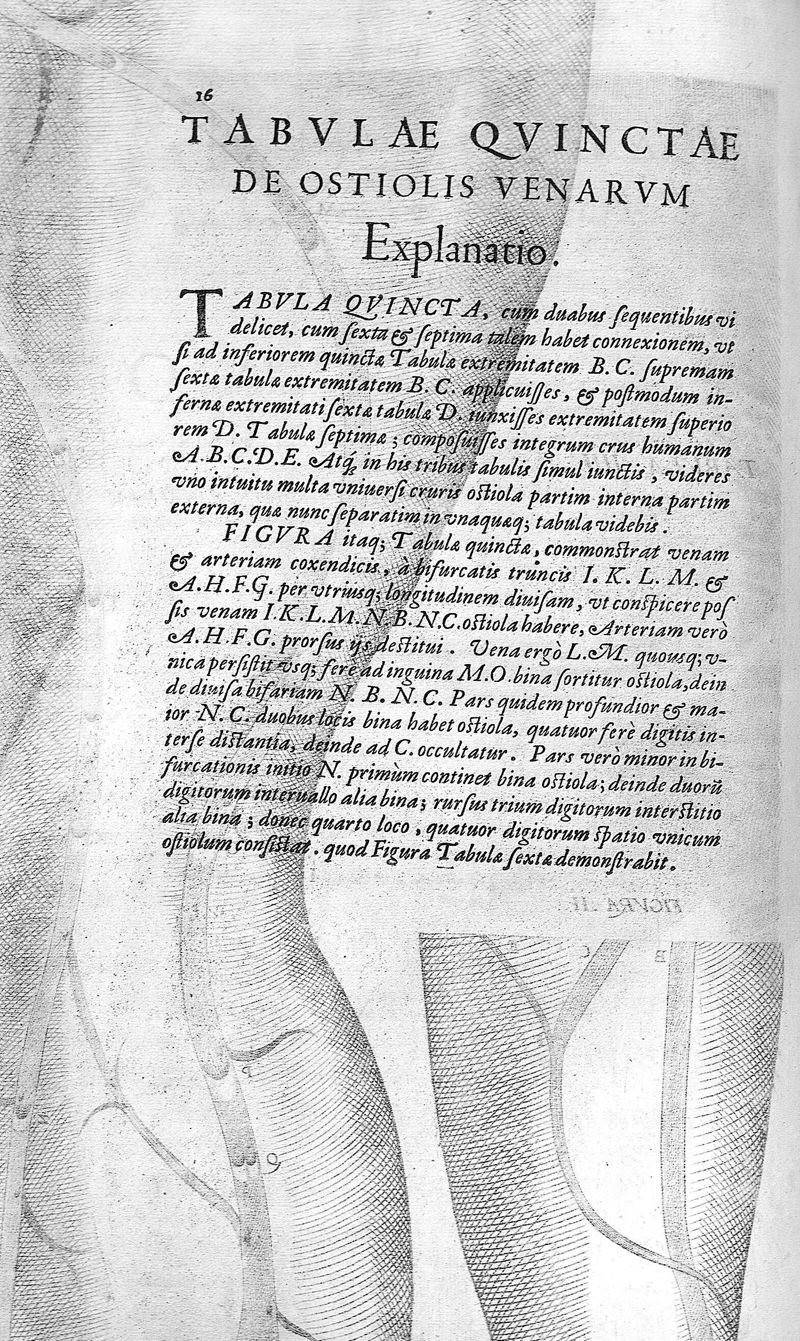 16
TABVLAE QVINCTAE
DE OSTIOLIS VENARVM
Explanatio.
TABVLA QVINCTA, cum duabus ſequentibus vi
delicet, cum ſexta & ſeptima talem habet connexionem, vt
ſi ad inferiorem quinctæ Tabulæ extremitatem B. C. ſupremam
ſextæ tabulæ extremitatem B. C. applicuiſſes, & poſtmodum in-
fernæ extremitati ſextæ tabulæ D. iunxiſſes extremitatem ſuperio
rem D. Tabulæ ſeptimæ; compoſuiſſes integrum crus humanum
A.B.C.D.E. Atq́; in his tribus tabulis ſimul iunctis, videres
vno intuitu multa vniuerſi cruris oſtiola partim interna partim
externa, quæ nunc ſeparatim in vnaquaq; tabula videbis.
FIGVRA itaq; Tabulæ quinctæ, commonſtrat venam
& arteriam coxendicis, à bifurcatis truncis I. K. L. M. &
A.H.F.G. per vtriusq; longitudinem diuiſam, vt conſpicere poſ
ſis venam I.K.L.M.N.B.N.C. oſtiola habere, Arteriam verò
A.H.F.G. prorſus ijs deſtitui. Vena ergò L.M. quousq; v-
nica perſiſtit vsq; ferè ad inguina M.O. bina ſortitur oſtiola, dein
de diuiſa bifariam N. B. N. C. Pars quidem profundior & ma-
ior N. C. duobus locis bina habet oſtiola, quatuor ferè digitis in-
terſe diſtantia, deinde ad C. occultatur. Pars verò minor in bi-
furcationis initio N. primùm continet bina oſtiola; deinde duorũ
digitorum interuallo alia bina; rurſus trium digitorum interſtitio
alia bina; donec quarto loco, quatuor digitorum ſpatio vnicum
oſtiolum conſiſtat. quod Figura Tabulæ ſextæ demonſtrabit.
FIGVRA II.
C B